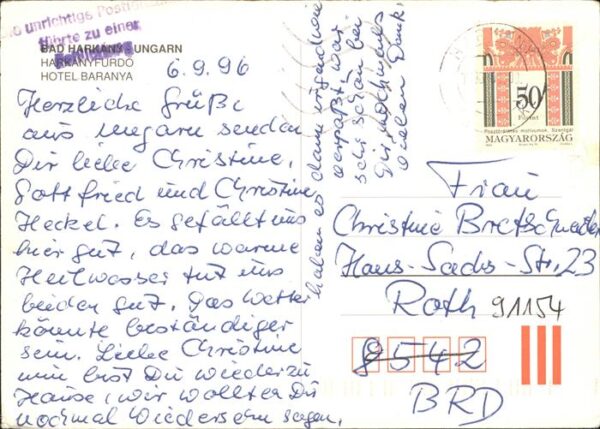 unrichtige Postleitzahl
führte zu einer
BAD HARKÁNY, UNGARN
HARKÁNYFÜRDŐ
HOTEL BARANYA
6.9.96
Herzliche Grüße
aus Ungarn senden
Dir liebe Christine,
Gottfried und Christine
Heckel. Es gefällt uns
hier gut, das warme
Heilwasser tut uns
beiden gut. Das Wetter
könnte beständiger
sein. Liebe Christine
nun bist Du wieder zu
Hause, wir wollten Dir
nochmal Wiedersehn sagen,
haben es dann irgendwie
verpaßt, war
sehr schön bei
Dir nochmals
vielen Dank.
50
Forint
MAGYARORSZÁG
Frau
Christine Bretschneider
Hans-Sachs-Str. 23
Roth 91154
8542
BRD